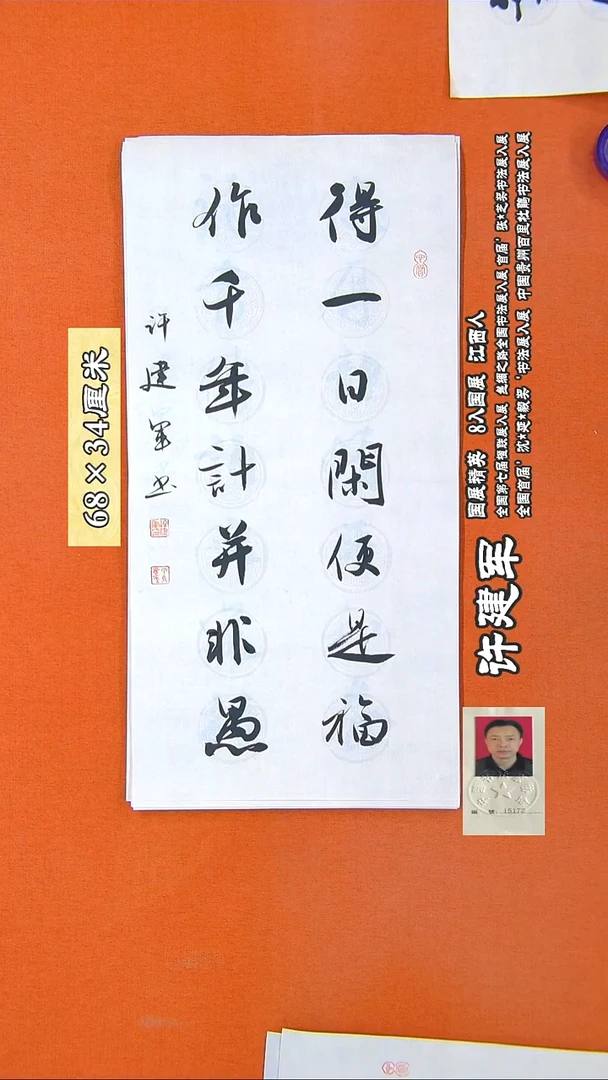 得一日閑便是福
作千年計并非愚
许建军书
68×34厘米
许建军
国展精英 8入国展 江西人
全国第七届楹联展入展 丝绸之路全国书法展入展 首届‘张★芝奖书法展入展
全国首届’沈★延★毅奖‘书法展入展 中国贵州百里杜鹃书法展入展
15172